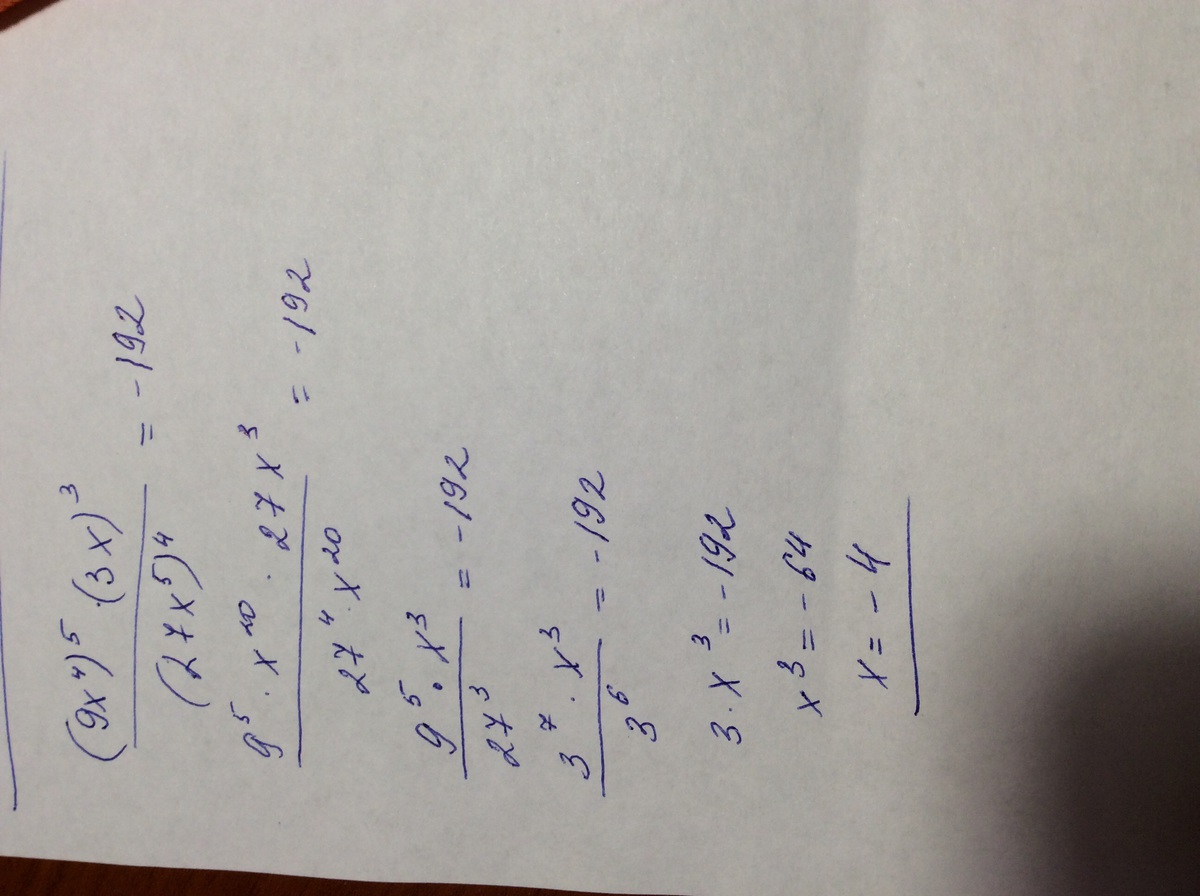 (9x⁴)⁵ · (3x)³ / (27x⁵)⁴ = -192
9⁵ · x²⁰ · 27x³ / 27⁴ · x²⁰ = -192
9⁵ · x³ / 27³ = -192
3⁷ · x³ / 3⁶ = -192
3 · x³ = -192
x³ = -64
x = -4